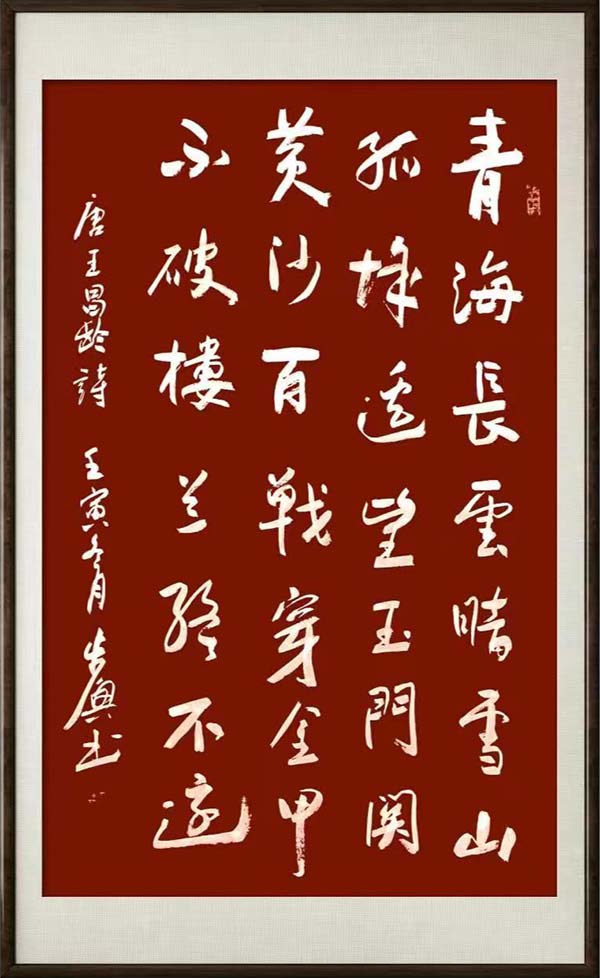 青海長雲暗雪山
孤城遥望玉門関
黄沙百戦穿金甲
不破樓兰終不還
唐王昌齡詩 壬寅冬月 书